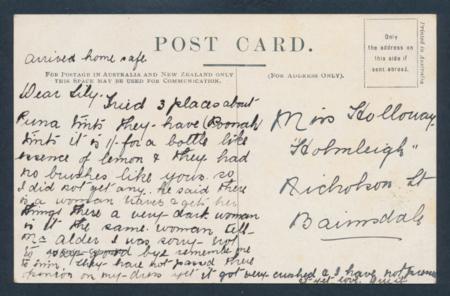 POST CARD.
arrived home safe
FOR POSTAGE IN AUSTRALIA AND NEW ZEALAND ONLY
THIS SPACE MAY BE USED FOR COMMUNICATION.
(FOR ADDRESS ONLY).
Only
the address on
this side if
sent abroad.
Printed in Australia
Dear Lily. Tried 3 places about
tints they have (
tints it is 1/- for a bottle like
essence of lemon & they had
no brushes like yours so
I did not get any. He said there
is a woman & gets her
things there a very dark woman
is it the same woman tell
alder I was sorry not
to bye remember me
to him they have not passed there
opinion on my dress yet it got very crushed & I have not
it yet love
Miss Holloway.
"Holmleigh"
Nicholson St
Bairnsdale